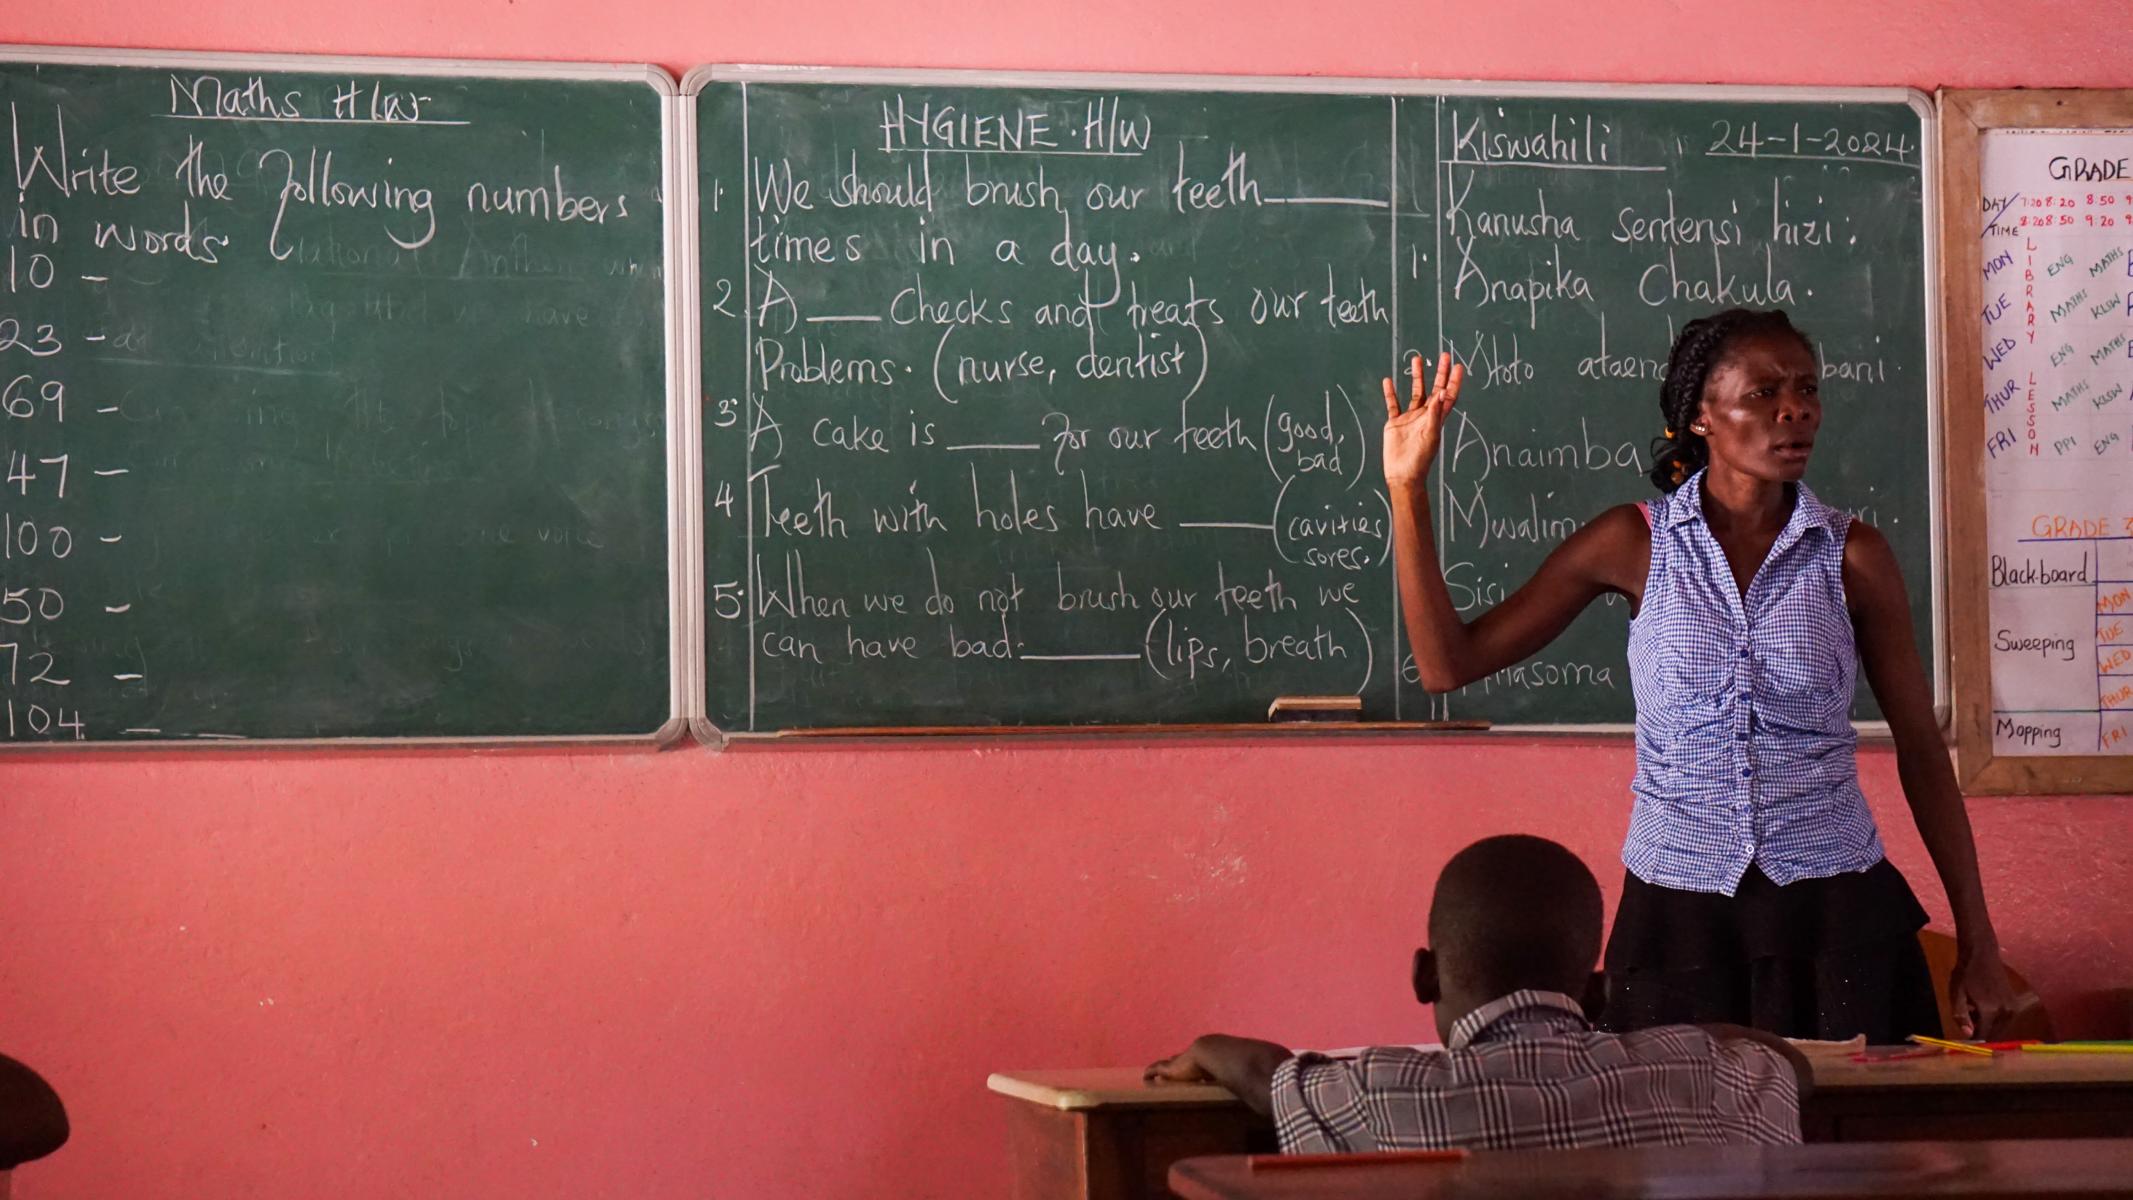 Maths H/W
Write the following numbers
in words.
10 -
23 -
69 -
47 -
100 -
50 -
72 -
104 - -
HYGIENE. H/W
1. We should brush our teeth______
times in a day.
2. A ____ Checks and treats our teeth
Problems. (nurse, dentist)
3 A cake is ____ for our teeth (good,
bad)
4 Teeth with holes have ____ (cavities
sores.)
5. When we do not brush our teeth we
can have bad ______ (lips, breath)
Kiswahili 24-1-2024.
Kanusha sentensi hizi:
1. Anapika Chakula.
2. Mtoto
Anaimba
Sisi
GRADE
DAY 7:20 8:20 8:50
TIME 8:20 8:50 9:20
MON ENG MATHS
TUE MATHS KLSW
WED ENG MATHS
THUR MATHS KLSW
FRI PPI ENG
LIBRARY
LESSON
GRADE 3
Blackboard
MON
Sweeping TUE
WED
THUR
Mopping FRI